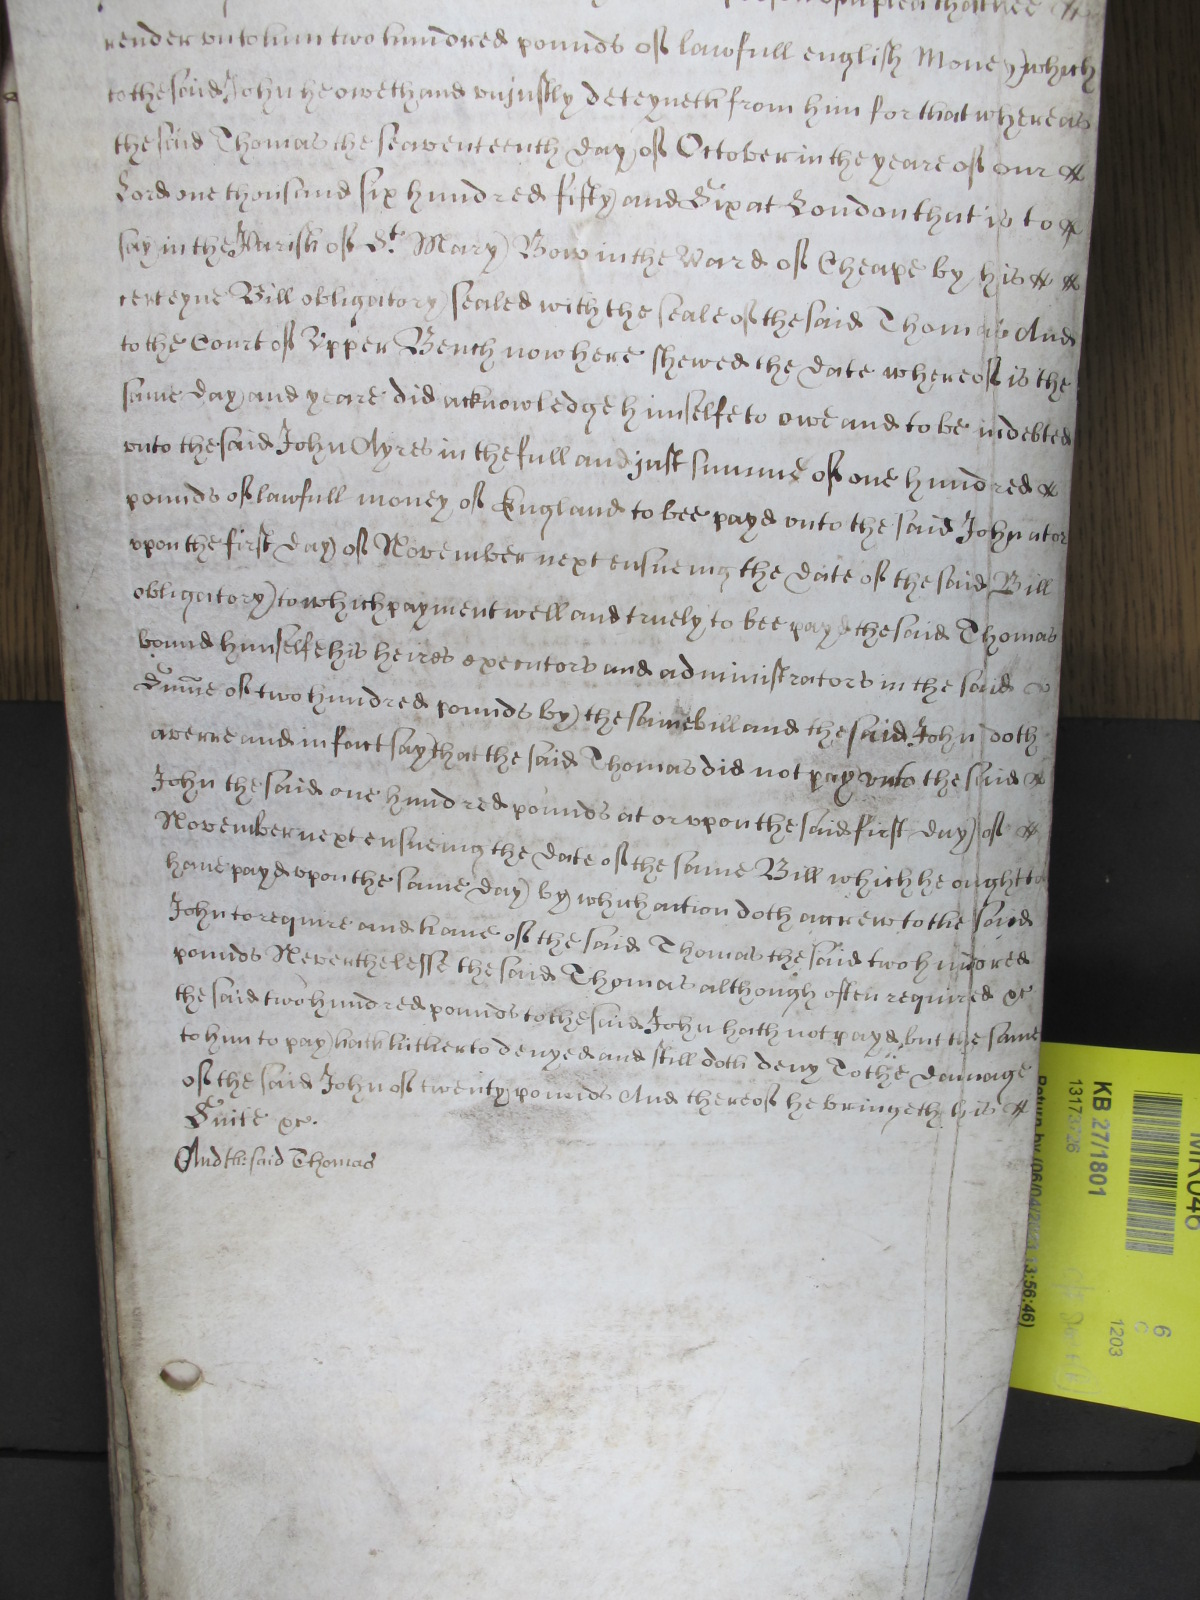 that hee
render vnto him two hundred pounds of lawfull english Money which
to the said John he oweth and vnjustly deteyneth from him for that whereas
the said Thomas the seaventeenth day of October in the yeare of our
Lord one thousand six hundred fifty and Six at London that is to
say in the Parish of St Mary Bow in the Ward of Cheape by his
certeyne Bill obligatory sealed with the seale of the said Thomas And
to the Court of Vpper Bench now here shewed the date whereof is the
same day and yeare did acknowledge himselfe to owe and to be indebted
vnto the said John Ayres in the full and just summe of one hundred
pounds of lawfull money of England to bee payd vnto the said John at or
vpon the first day of November next ensueing the date of the said Bill
obligatory to which payment well and truely to bee payd the said Thomas
bound himselfe his heires executors and administrators in the said
Sume of two hundred pounds by the same bill and the said John doth
averre and in fact say that the said Thomas did not pay vnto the said
John the said one hundred pounds at or vpon the said first day of
November next ensueing the date of the same Bill which he ought to
have payd vpon the same day by which action doth accrew to the said
John to require and have of the said Thomas the said two hundred
pounds Neverthelesse the said Thomas although often required &c
the said two hundred pounds to the said John hath not payd but the same
to him to pay hath hitherto denyed and still doth deny To the damage
of the said John of twenty pounds And thereof he bringeth his
Suite &c.
And the said Thomas
KB 27/1801
13173726
Return by (06/04/2021 13:56:46)
6
C
1203